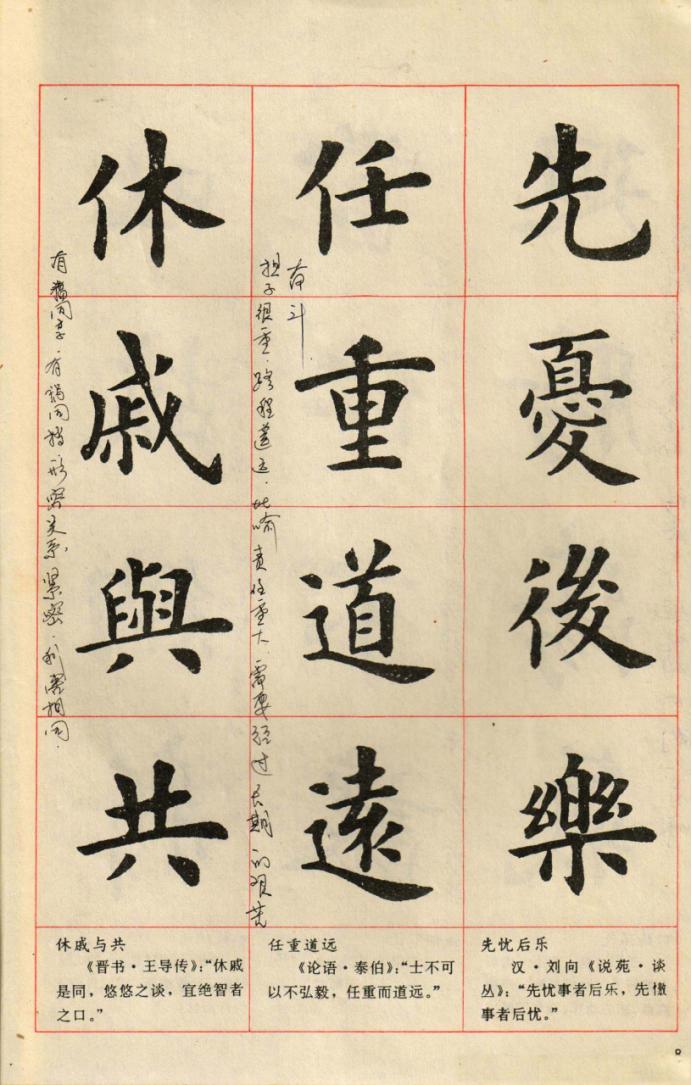 先憂後樂
任重道遠
休戚與共
奋斗
担子很重，路程遥远，比喻责任重大，需要经过长期的艰苦
有福同享，有祸同当，形容关系紧密，利害相同。
先忧后乐
汉·刘向《说苑·谈
丛》：“先忧事者后乐，先傲
事者后忧。”
任重道远
《论语·泰伯》：“士不可
以不弘毅，任重而道远。”
休戚与共
《晋书·王导传》：“休戚
是同，悠悠之谈，宜绝智者
之口。”